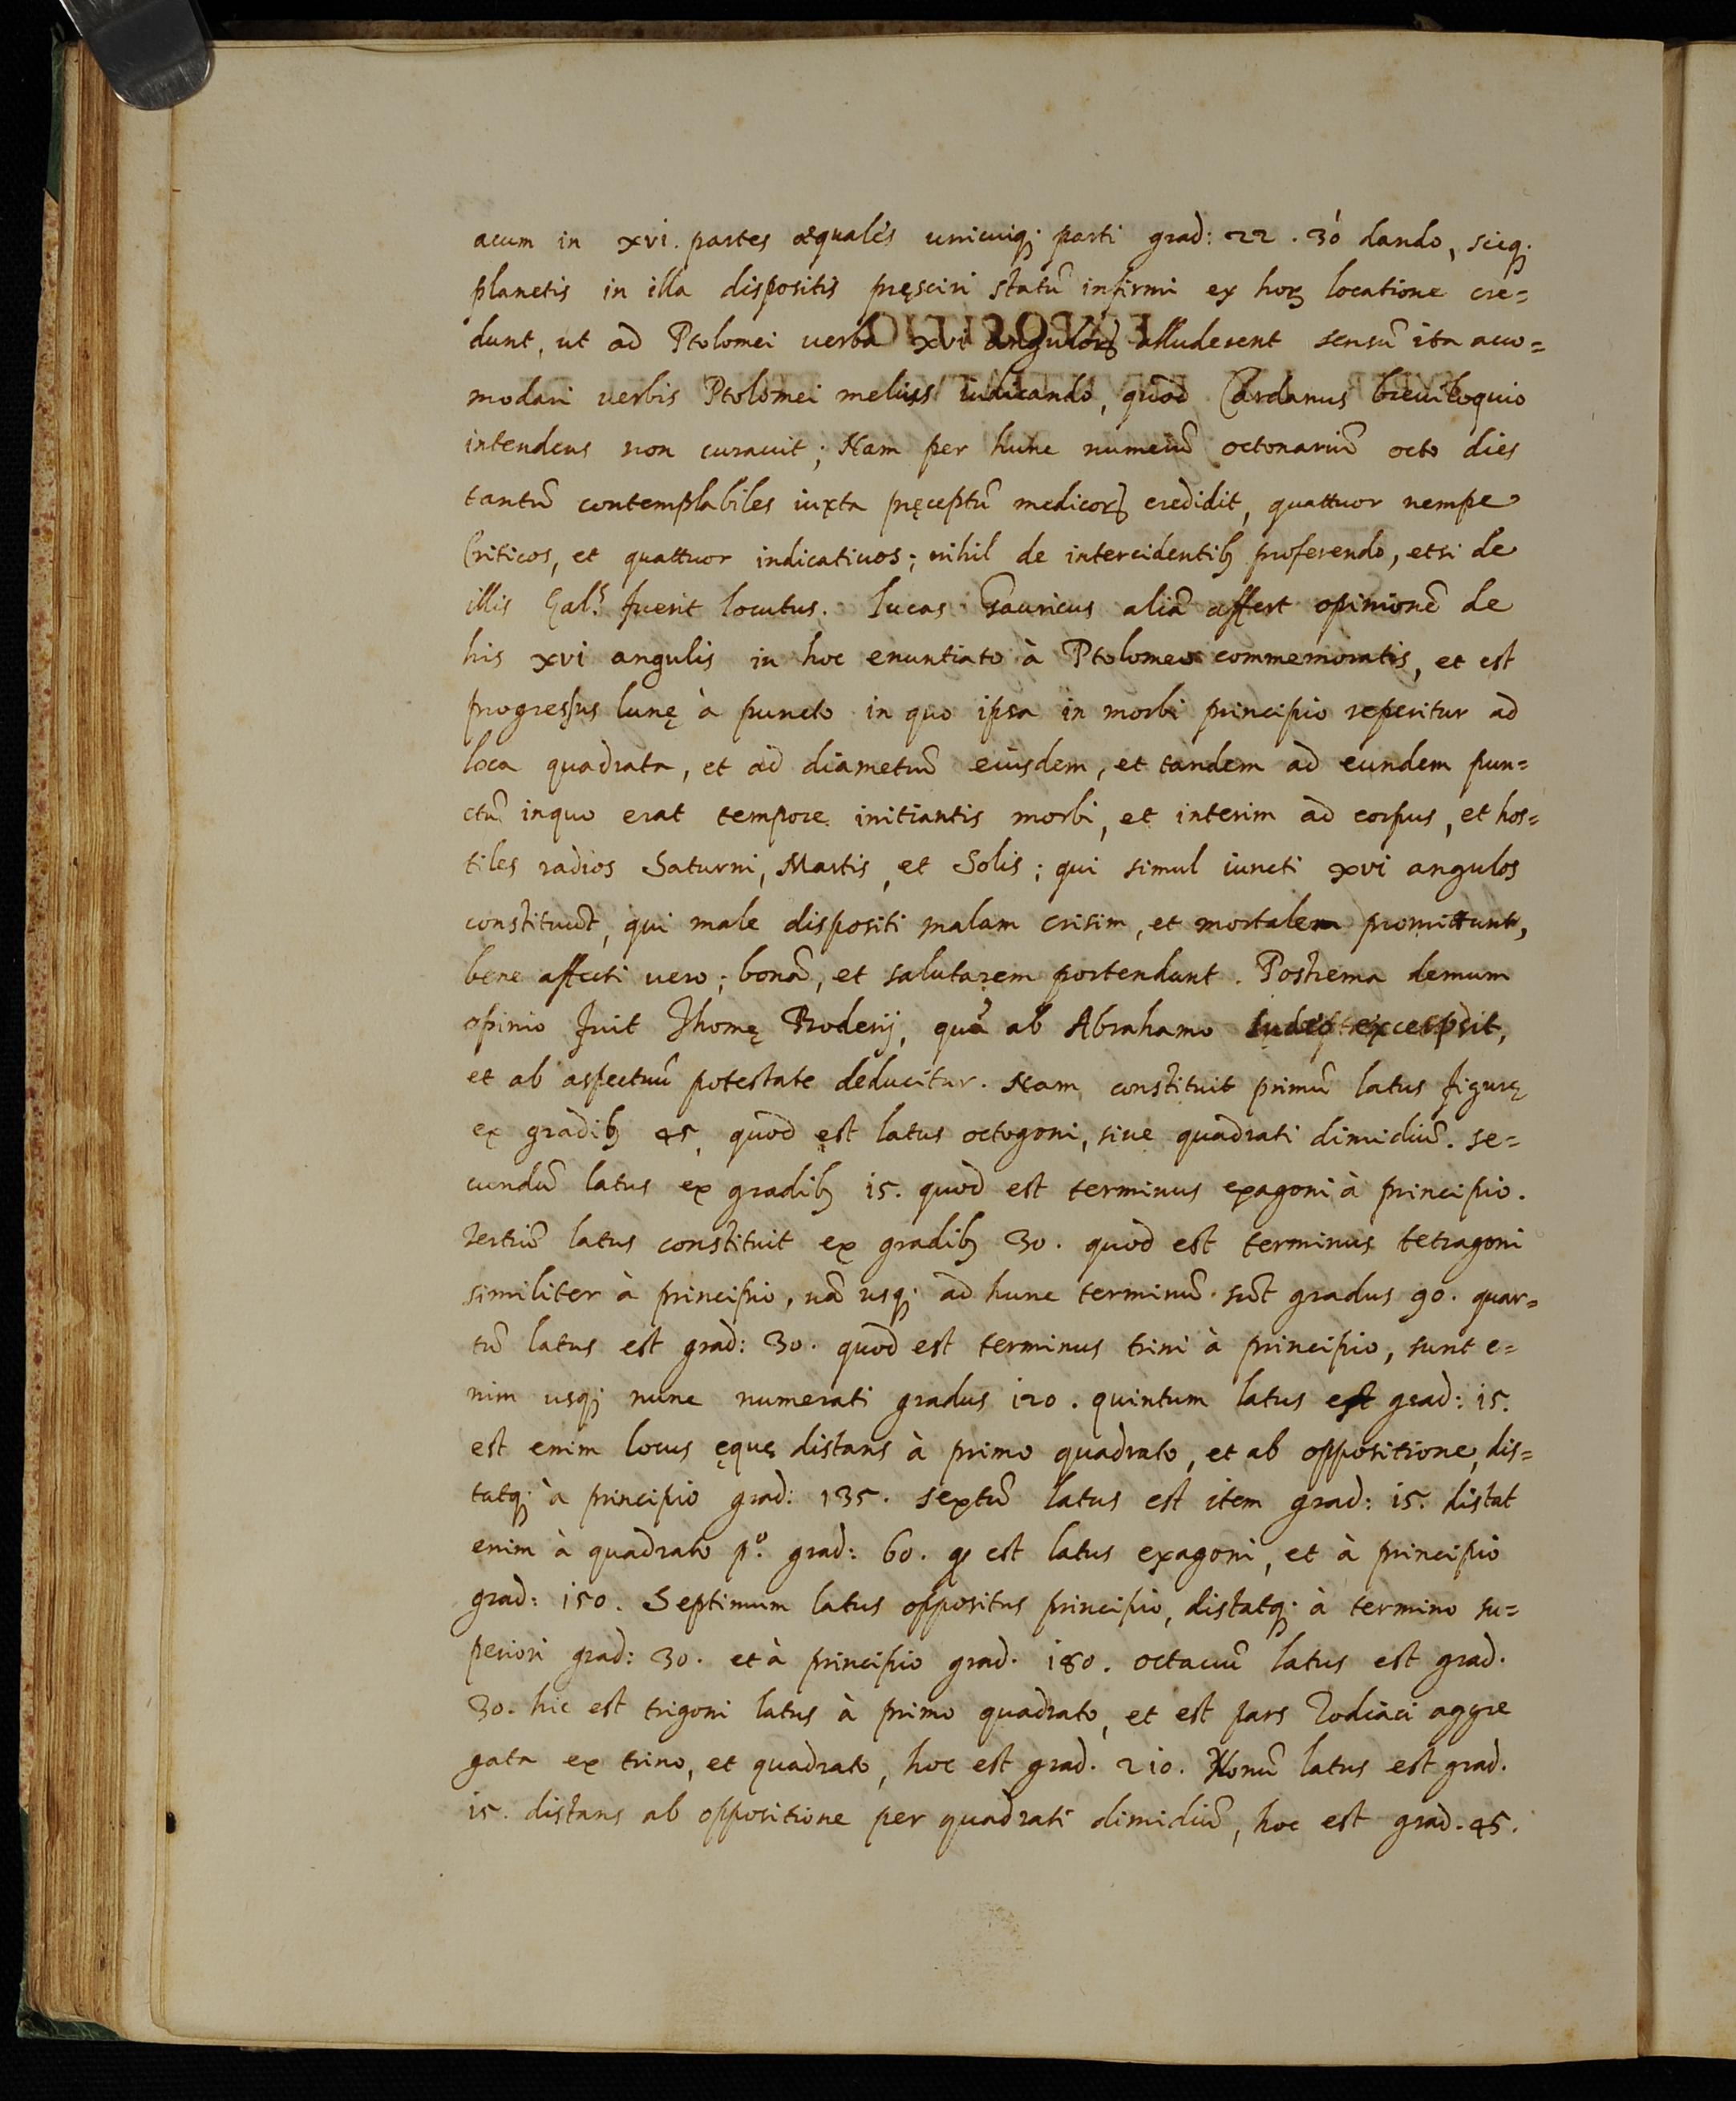 acum in xvi. partes æquales unicuiq; parti grad: 22 . 30 dando, sicq;
planetis in illa dispositis pręsciri statũ infirmi ex horꝝ locatione cre=
dunt, ut ad Ptolomei uerba xvi angulorꝝ alluderent sensũ ita acco=
modari uerbis Ptolomei melius iudicando, quod Cardanus breuiloquio
intendens non curauit; Nam per hunc numerũ octonariũ octo dies
tantũ contemplabiles iuxta pręceptũ medicorꝝ credidit, quattuor nempe
Criticos, et quattuor indicatiuos; nihil de intercidentibꝫ proferendo, etsi de
illis Gal.s fuerit locutus. Lucas Gauricus aliã affert opinionẽ de
his xvi angulis in hoc enuntiato à Ptolomeo commemoratis, et est
progressus lunę à puncto in quo ipsa in morbi principio reperitur ad
loca quadrata, et ad diametrũ eiusdem, et tandem ad eundem pun=
ctũ inquo erat tempore initiantis morbi, et interim ad corpus, et hos=
tiles radios Saturni, Martis, et Solis; qui simul iuncti xvi angulos
constituũt, qui male dispositi malam crisim, et mortalem promittunt,
bene affecti uero; bonã, et salutarem portendunt. Postrema demum
opinio fuit Thomę Boderij, quã ab Abrahamo Iudęo excerpsit,
et ab aspectuũ potestate deducitur. Nam constituit primũ latus figurę
ex gradibꝫ 45, quod est latus octogoni, siue quadrati dimidiũ. se=
cundũ latus ex gradibꝫ 15. quod est terminus exagoni à principio.
Tertiũ latus constituit ex gradibꝫ 30. quod est terminus tetragoni
similiter à principio, nã usq; ad hunc terminũ sũt gradus 90. quar=
tũ latus est grad: 30. quod est terminus trini à principio, sunt e=
nim usq; nunc numerati gradus 120. quintum latus est grad: 15.
est enim locus ęque distans à primo quadrato, et ab oppositione, dis=
tatq; à principio grad: 135. sextũ latus est item grad: 15. distat
enim à quadrato p.o grad: 60. qđ est latus exagoni, et à principio
grad: 150. Septimum latus oppositus principio, distatq; à termino su=
periori grad: 30. et à principio grad. 180. octauũ latus est grad.
30. hic est trigoni latus à primo quadrato, et est pars Zodiaci aggre
gata ex trino, et quadrato, hoc est grad. 210. Nonũ latus est grad.
15. distans ab oppositione per quadrati dimidiũ, hoc est grad. 45.